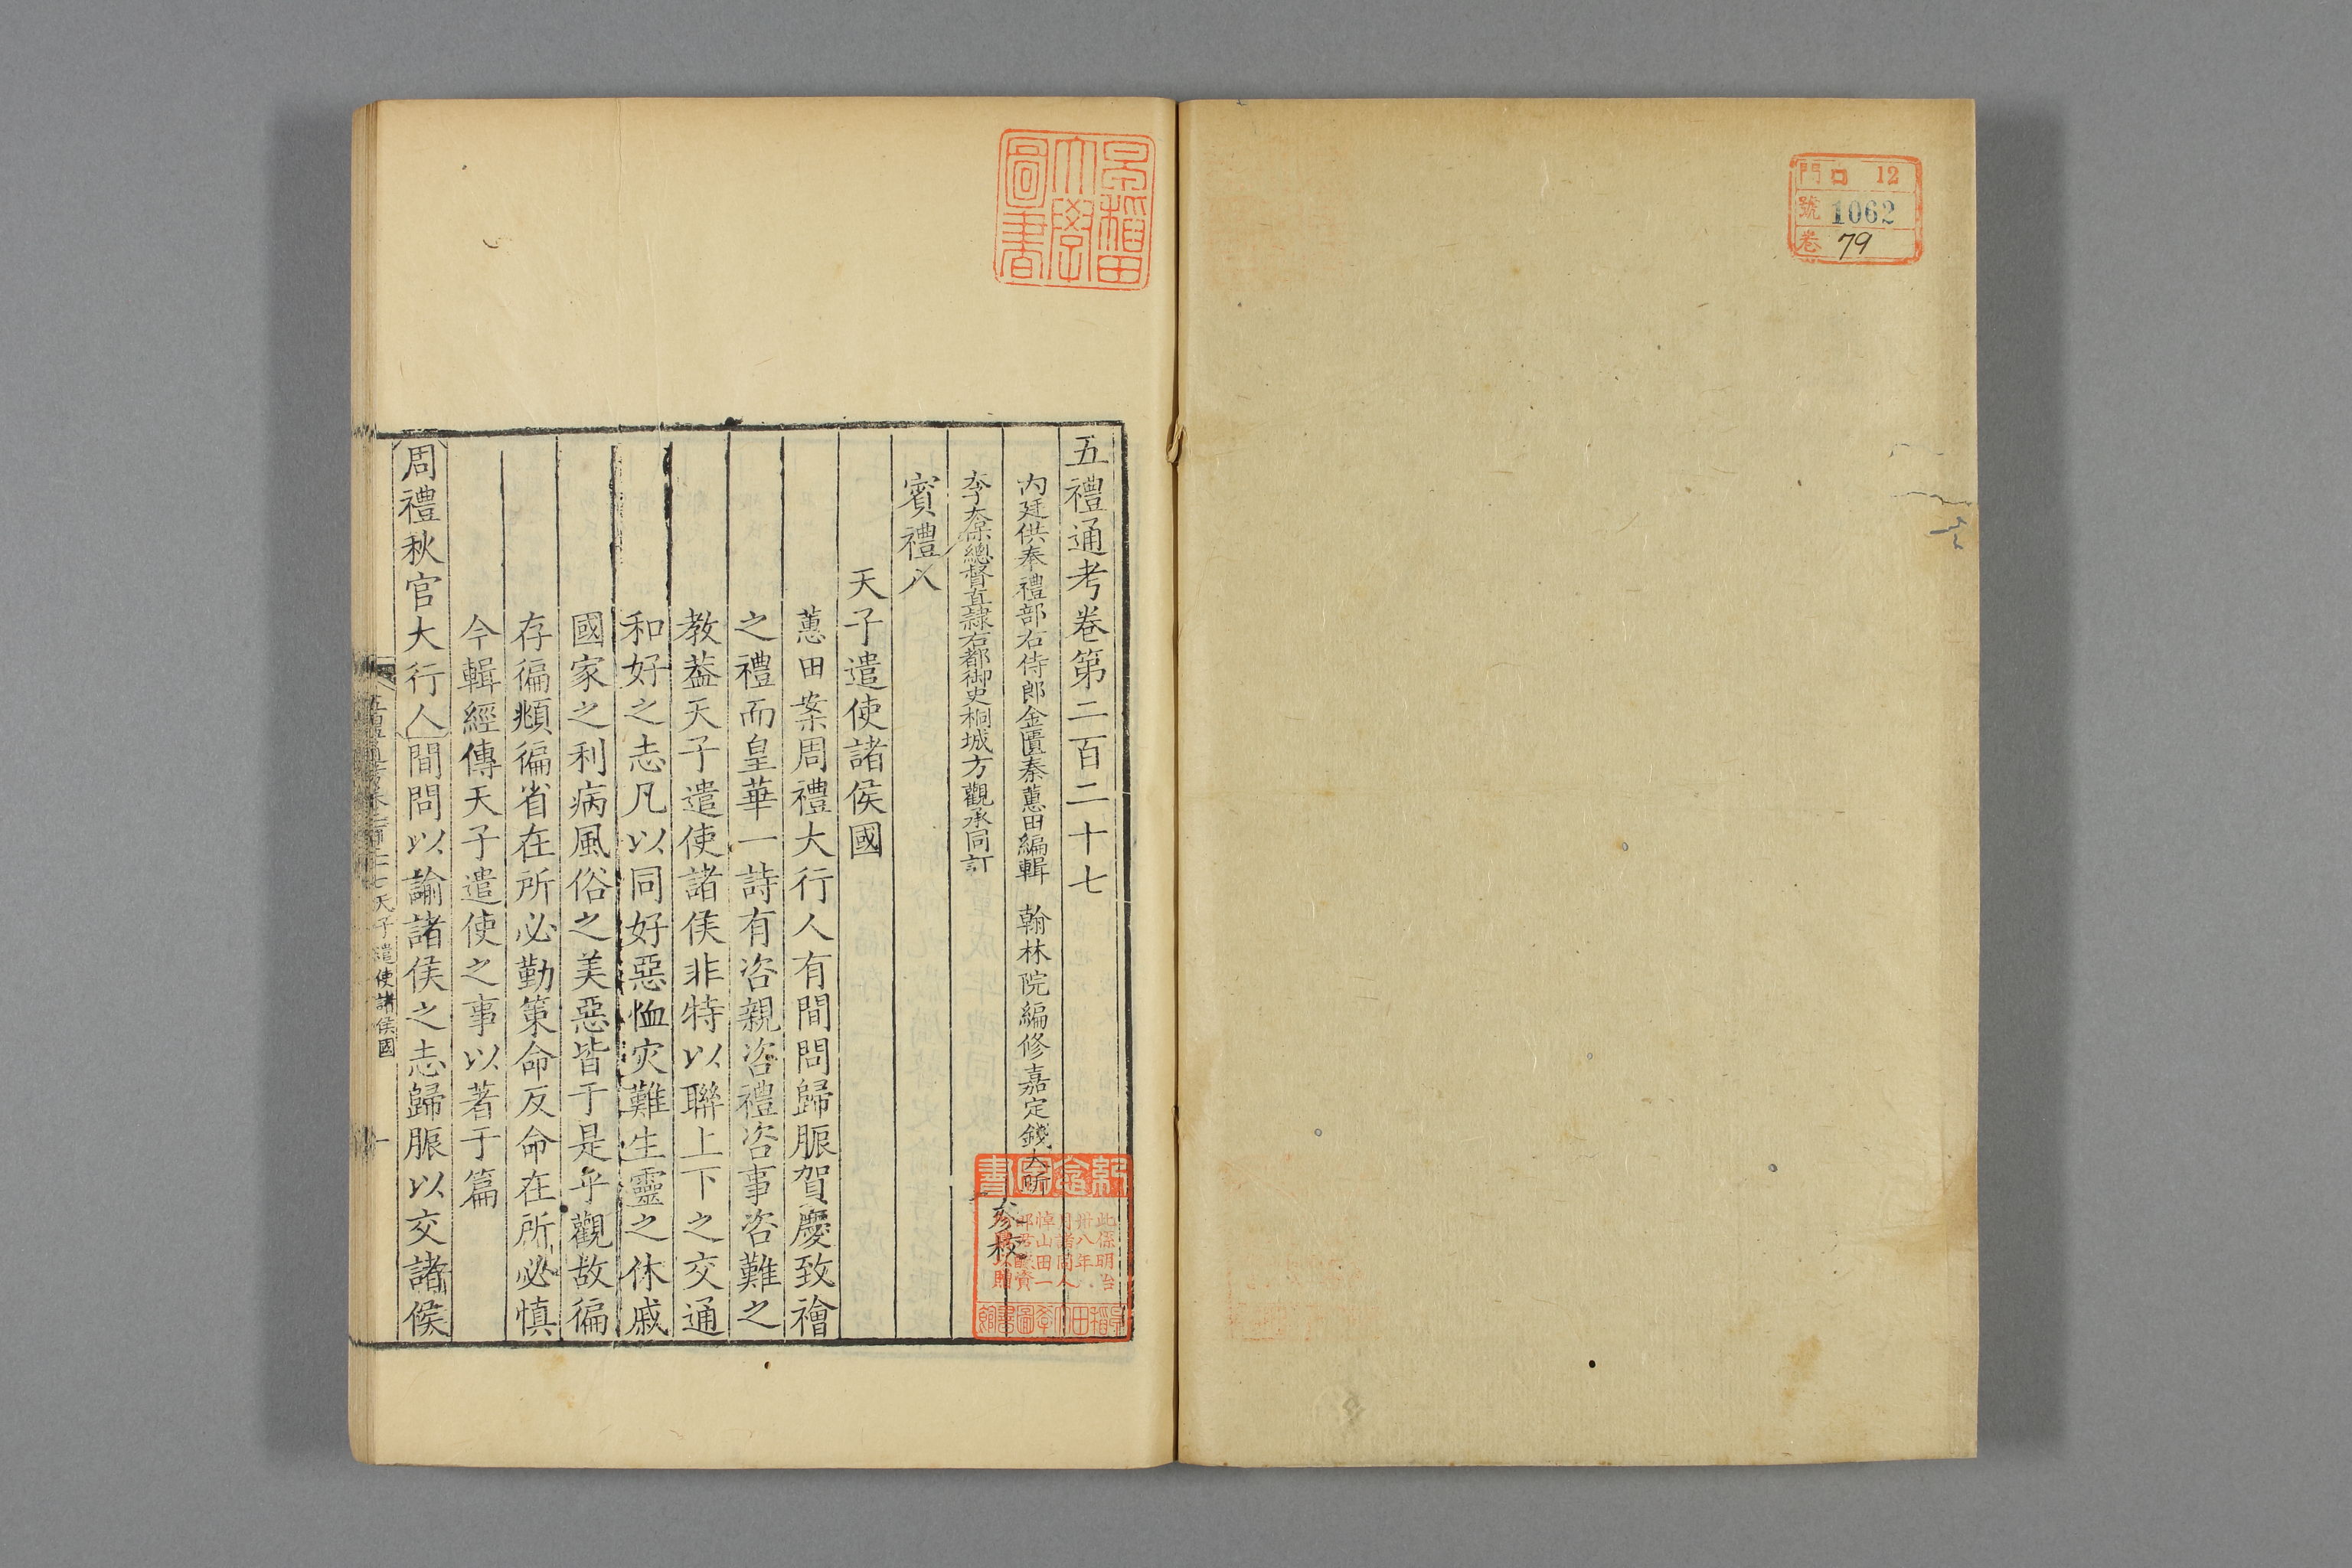 門 ロ 12
號 1062
卷 79
早稲田大學圖書
五禮通考卷第二百二十七
內廷供奉禮部右侍郎金匱秦蕙田編輯 翰林院編修嘉定錢大昕
李太保總督直隸右都御史桐城方觀承同訂
參校
賓禮八
天子遣使諸侯國
蕙田案周禮大行人有間問歸脤賀慶致禬
之禮而皇華一詩有咨親咨禮咨事咨難之
教葢天子遣使諸侯非特以聯上下之交通
和好之志凡以同好惡恤灾難生靈之休戚
國家之利病風俗之美惡皆于是乎觀故徧
存徧頫徧省在所必勤策命反命在所必慎
今輯經傳天子遣使之事以著于篇
周禮秋官大行人間問以諭諸侯之志歸脤以交諸侯
五禮通考卷二百二十七天子遣使諸侯國 一
此係明治
卅八年
早稲田大學圖書館